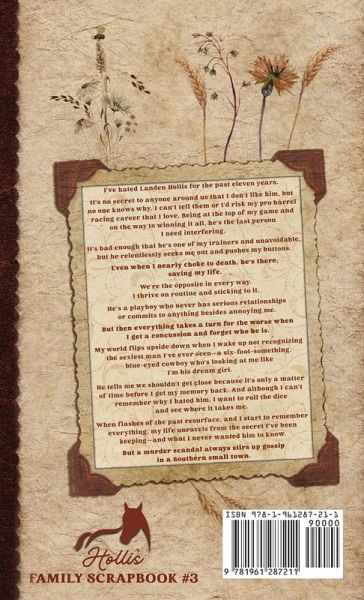 I've hated Landen Hollis for the past eleven years.
It's no secret to anyone around us that I don't like him, but
no one knows why. I can't tell them or I'd risk my pro barrel
racing career that I love. Being at the top of my game and
on the way to winning it all, he's the last person
I need interfering.
It's bad enough that he's one of my trainers and unavoidable,
but he relentlessly seeks me out and pushes my buttons.
Even when I nearly choke to death, he's there,
saving my life.
We're the opposite in every way.
I thrive on routine and sticking to it.
He's a playboy who never has serious relationships
or commits to anything besides annoying me.
But then everything takes a turn for the worse when
I get a concussion and forget who he is.
My world flips upside down when I wake up not recognizing
the sexiest man I've ever seen—a six-foot-something,
blue-eyed cowboy who's looking at me like
I'm his dream girl.
He tells me we shouldn't get close because it's only a matter
of time before I get my memory back. And although I can't
remember why I hated him, I want to roll the dice
and see where it takes me.
When flashes of the past resurface, and I start to remember
everything, my life unravels from the secret I've been
keeping—and what I never wanted him to know.
But a murder scandal always stirs up gossip
in a Southern small town.
ISBN 978-1-961287-21-1
90000
9 781961 287211
Hollis
FAMILY SCRAPBOOK #3